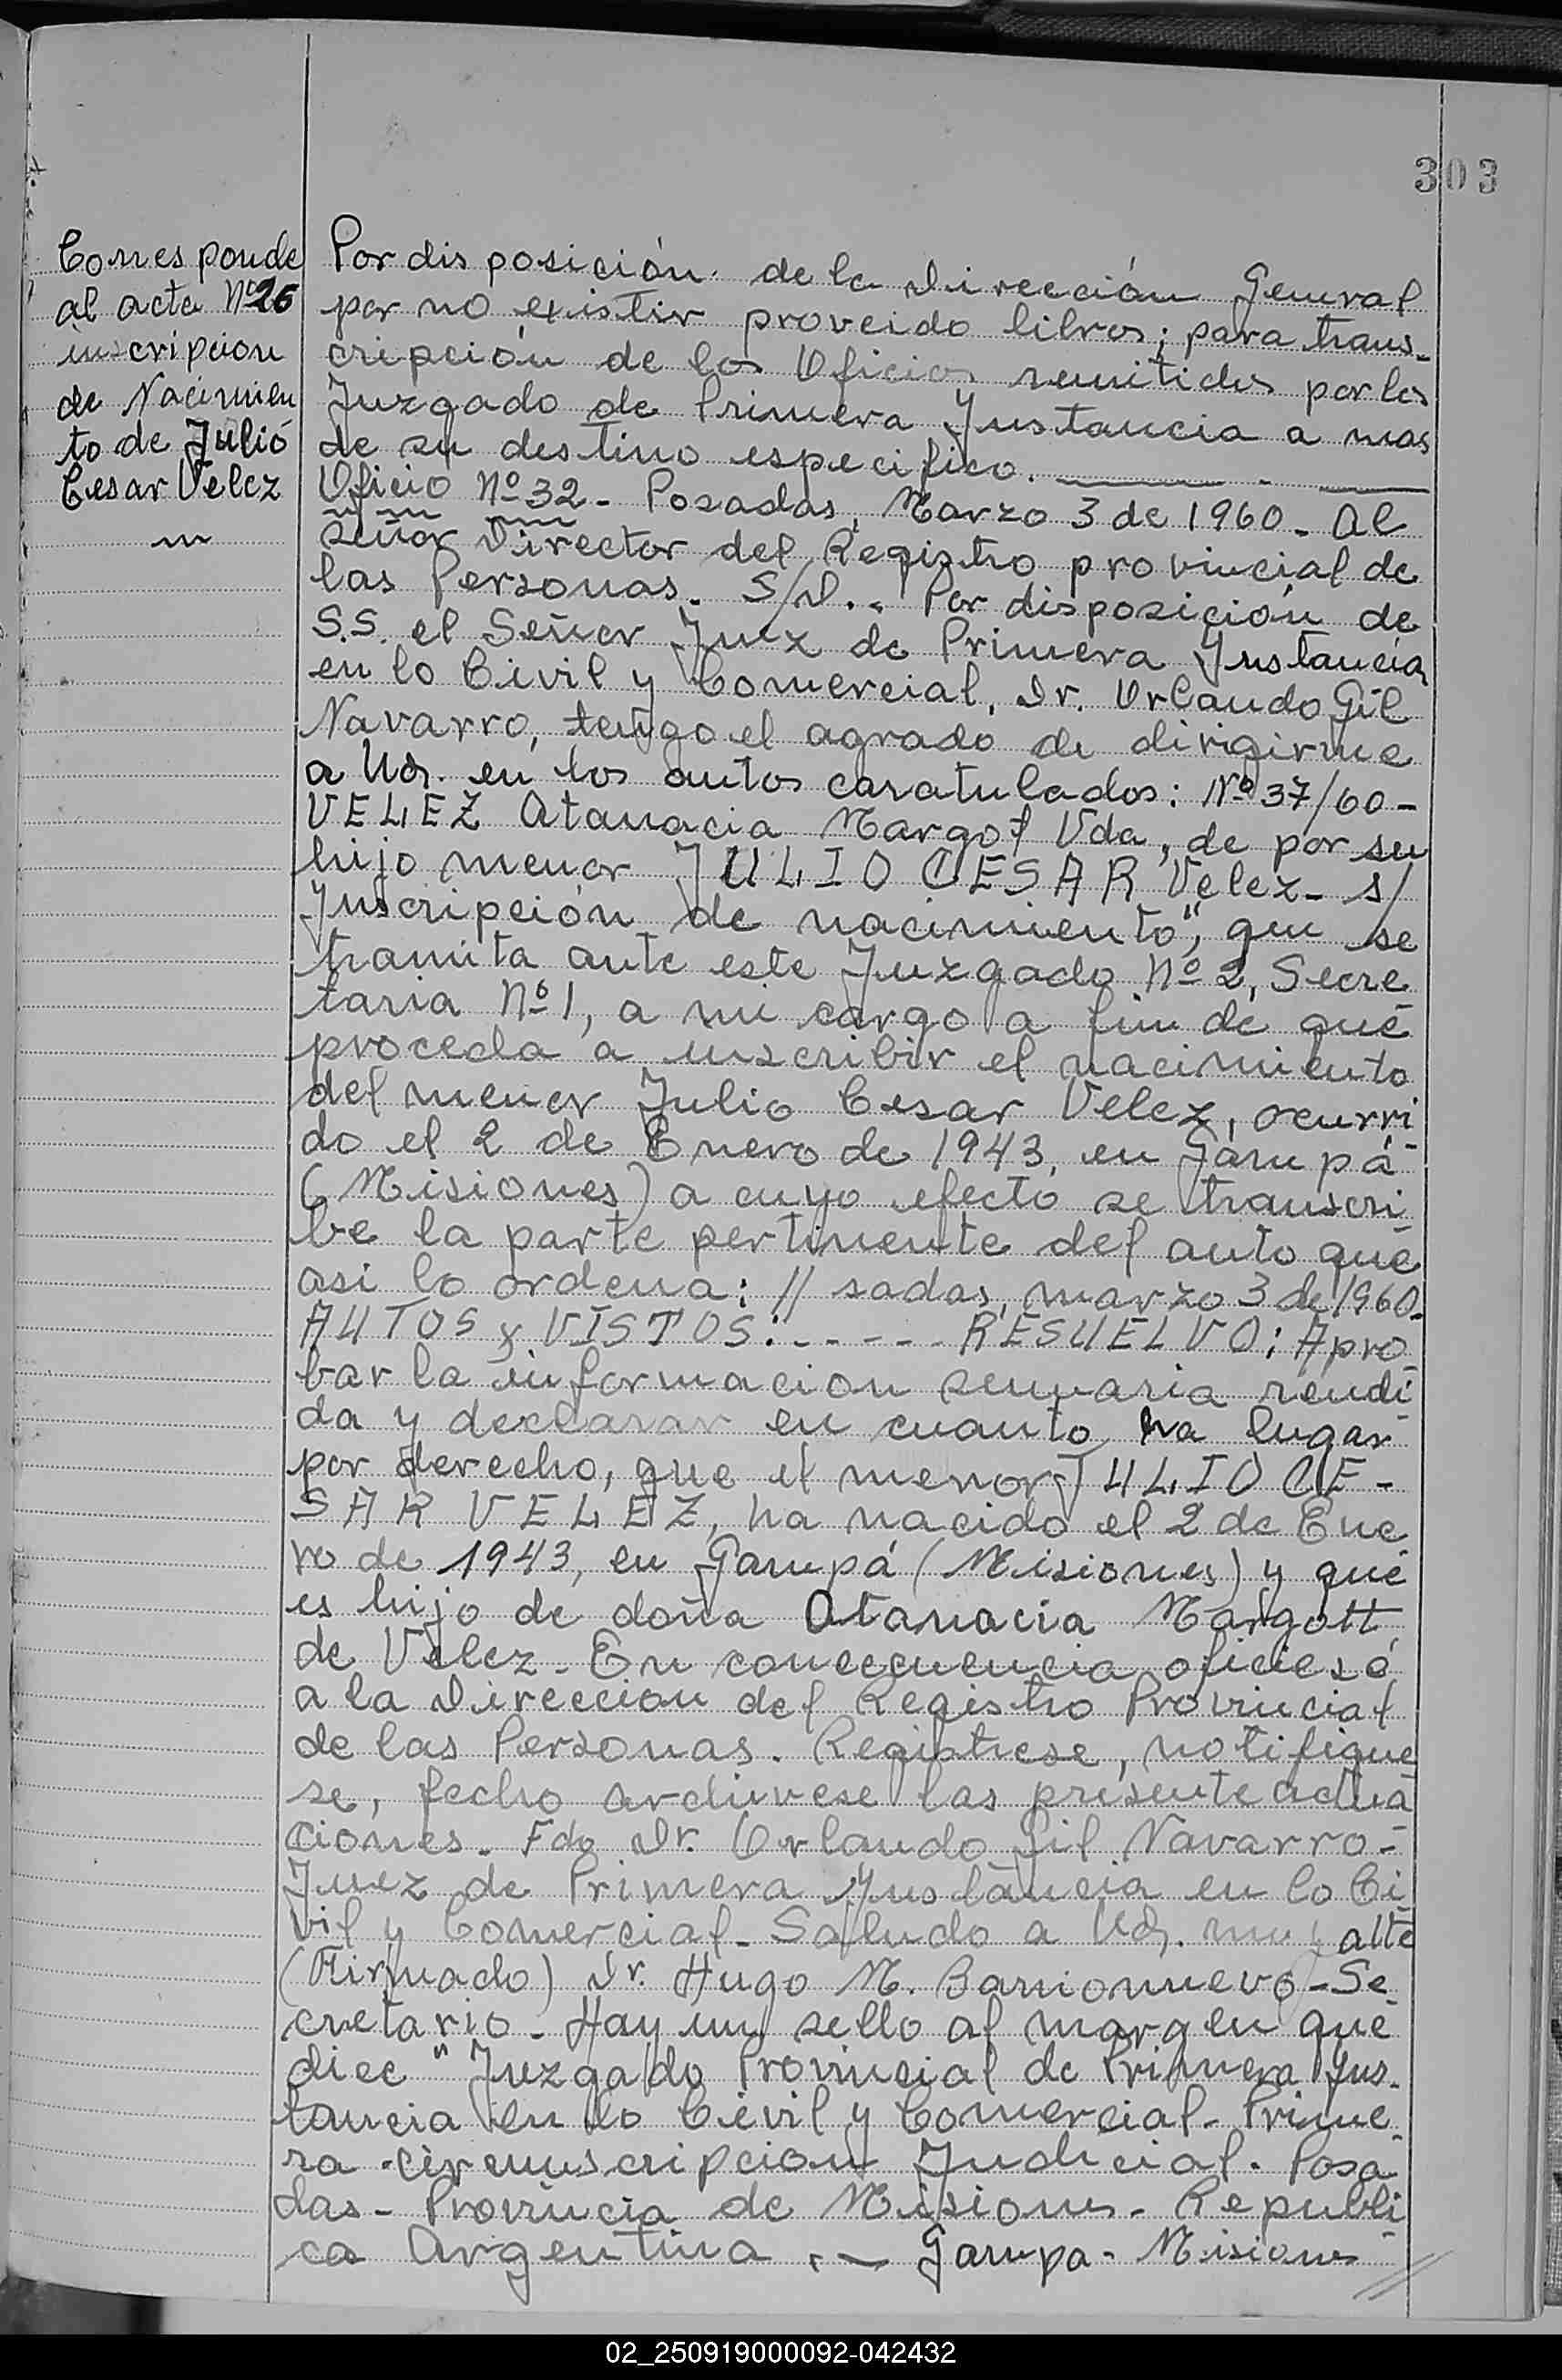 303
Corresponde
al acta Nº26
inscripcion
de Nacimien
to de Julió
Cesar Velez
Por disposición de la Dirección General
por no existir proveido libros; para trans-
cripción de los Oficios remitidos por los
Juzgado de Primera Instancia a mas
de su destino especifico.
Oficio Nº32- Posadas, Marzo 3 de 1960- Al
Señor Director del Registro provincial de
las Personas. S/D.- Por disposición de
S.S. el Señor Juez de Primera Instancia
en lo Civil y Comercial, Dr. Orlando Gil
Navarro, tengo el agrado de dirigirme
a Ud. en los autos caratulados: Nº 37/60-
VELEZ Atanacia Margot Vda, de por su
hijo menor JULIO CESAR Velez- s/
Inscripción de nacimiento", que se
tramita ante este Juzgado Nº 2, Secre
taria Nº1, a mi cargo a fin de que
proceda a inscribir el nacimiento
del menor Julio Cesar Velez, ocurri
do el 2 de Enero de 1943, en Garupá
(Misiones) a cuyo efecto se transcri
be la parte pertinente del auto que
asi lo ordena: // sadas, marzo 3 de 1960-
AUTOS y VISTOS:.----- RESUELVO: Apro
bar la informacion sumaria rendi
da y declarar en cuanto ha lugar
por derecho, que el menor JULIO CE-
SAR VELEZ, ha nacido el 2 de Ene
ro de 1943, en Garupá (Misiones) y que
es hijo de doña Atanacia Margott
de Velez- En conececuencia oficiesé
a la Direccion del Registro Provincial
de las Personas. Registrese, notifique
se, fecho archivese las presente actua
ciones. Fdo Dr. Orlando Gil Navarro-
Juez de Primera Instancia en lo Ci
vil y Comercial- Saludo a Ud. muy atte
(Firmado) Dr. Hugo M. Barrionuevo-Se
cretario- Hay un sello al margen que
dice "Juzgado Provincial de Primera Ins-
tancia en lo Civil y Comercial- Prime
ra circunscripcion Judicial. Posa
das- Provincia de Misiones- Republi
ca Argentina.- Garupa- Misiones
02_250919000092-042432